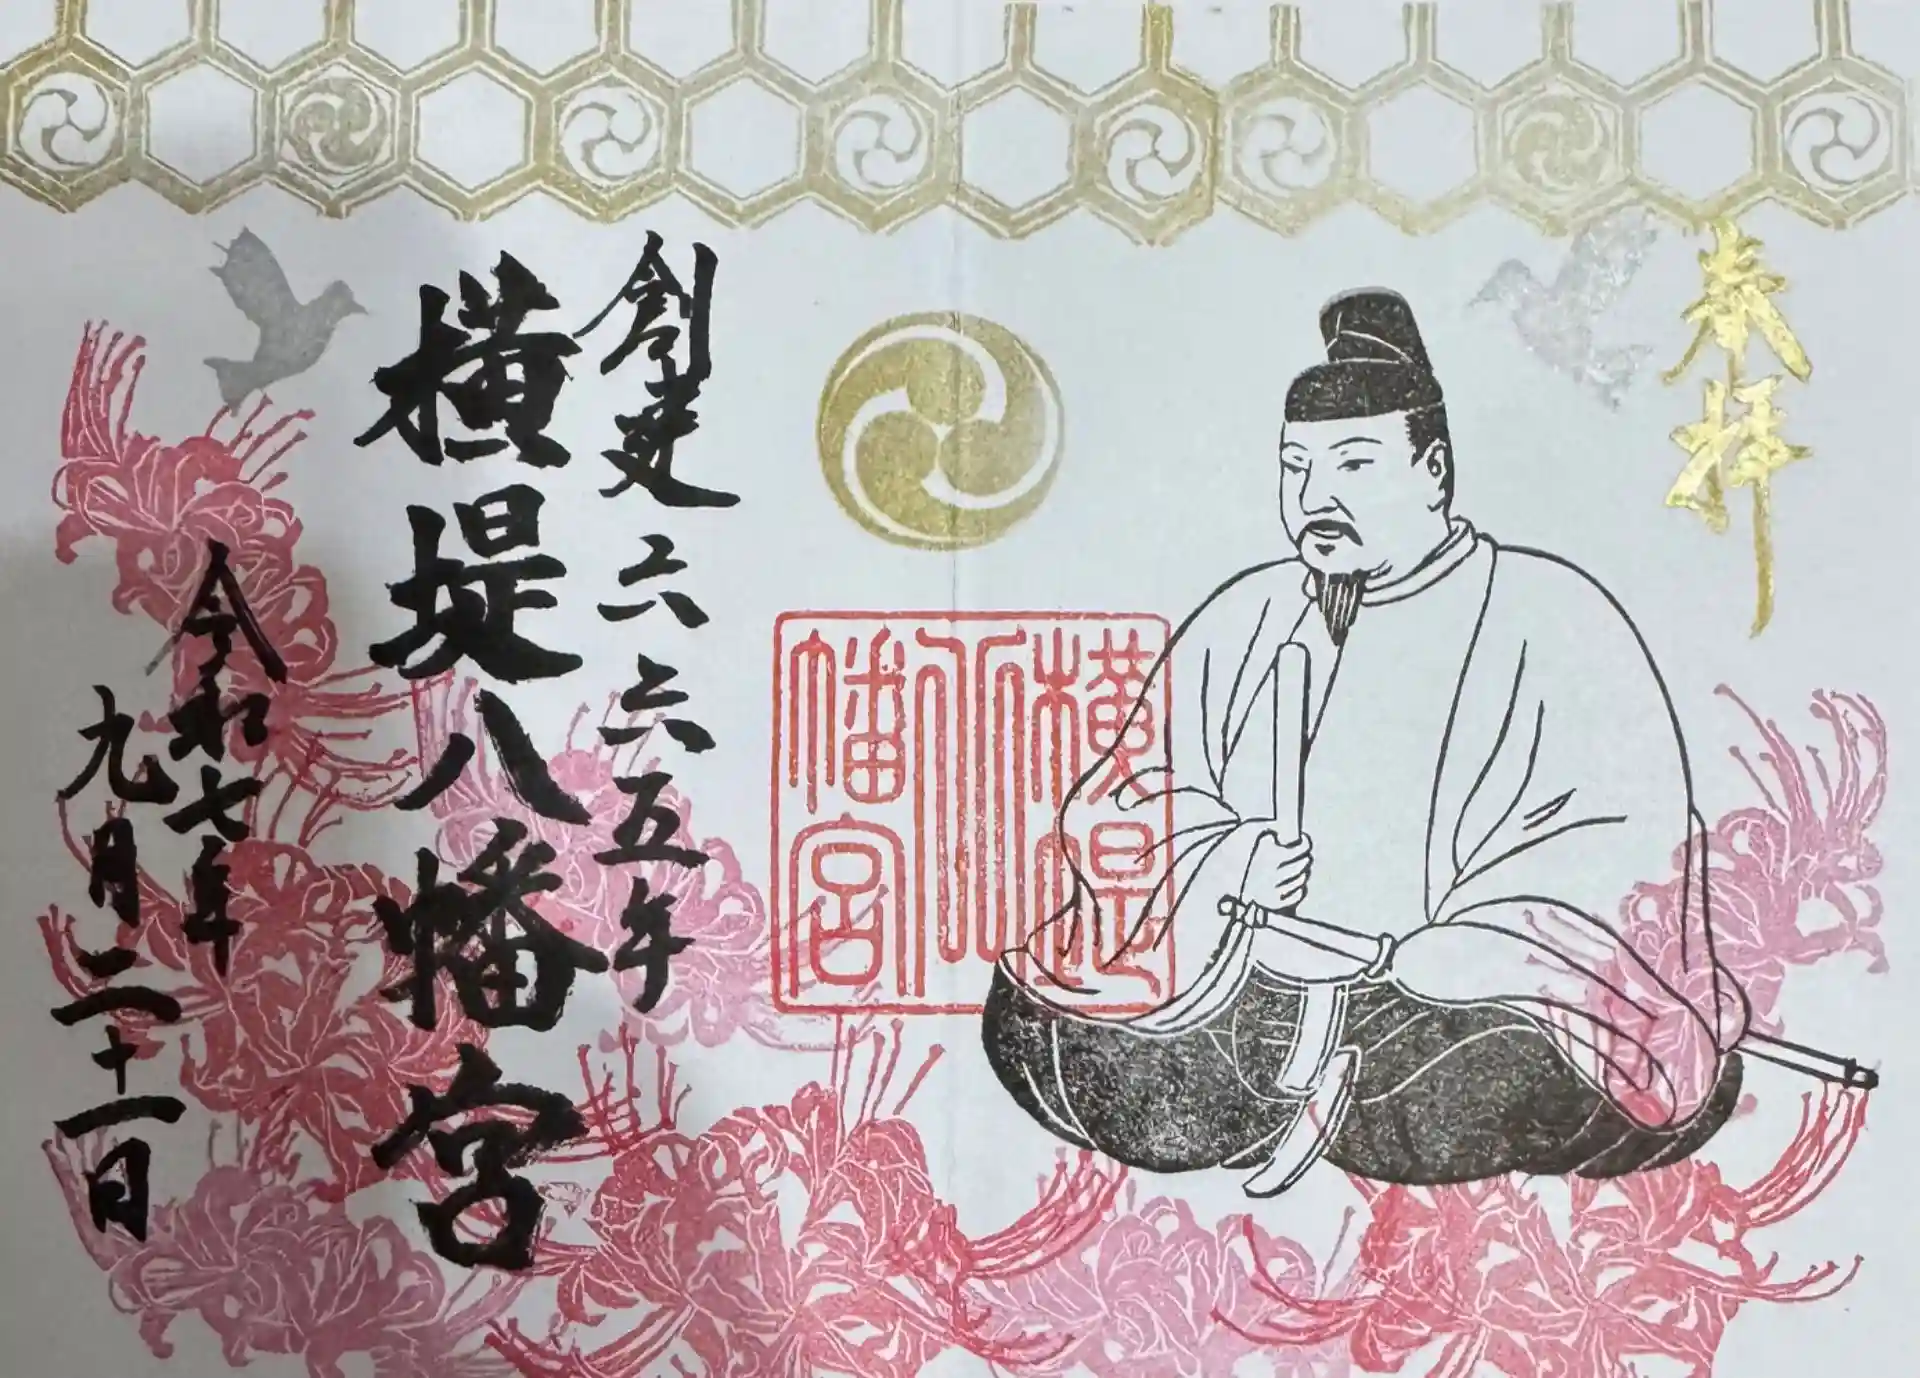 奉拝
横堤
八
幡宮
創建六六五年
横堤八幡宮
令和七年
九月二十一日